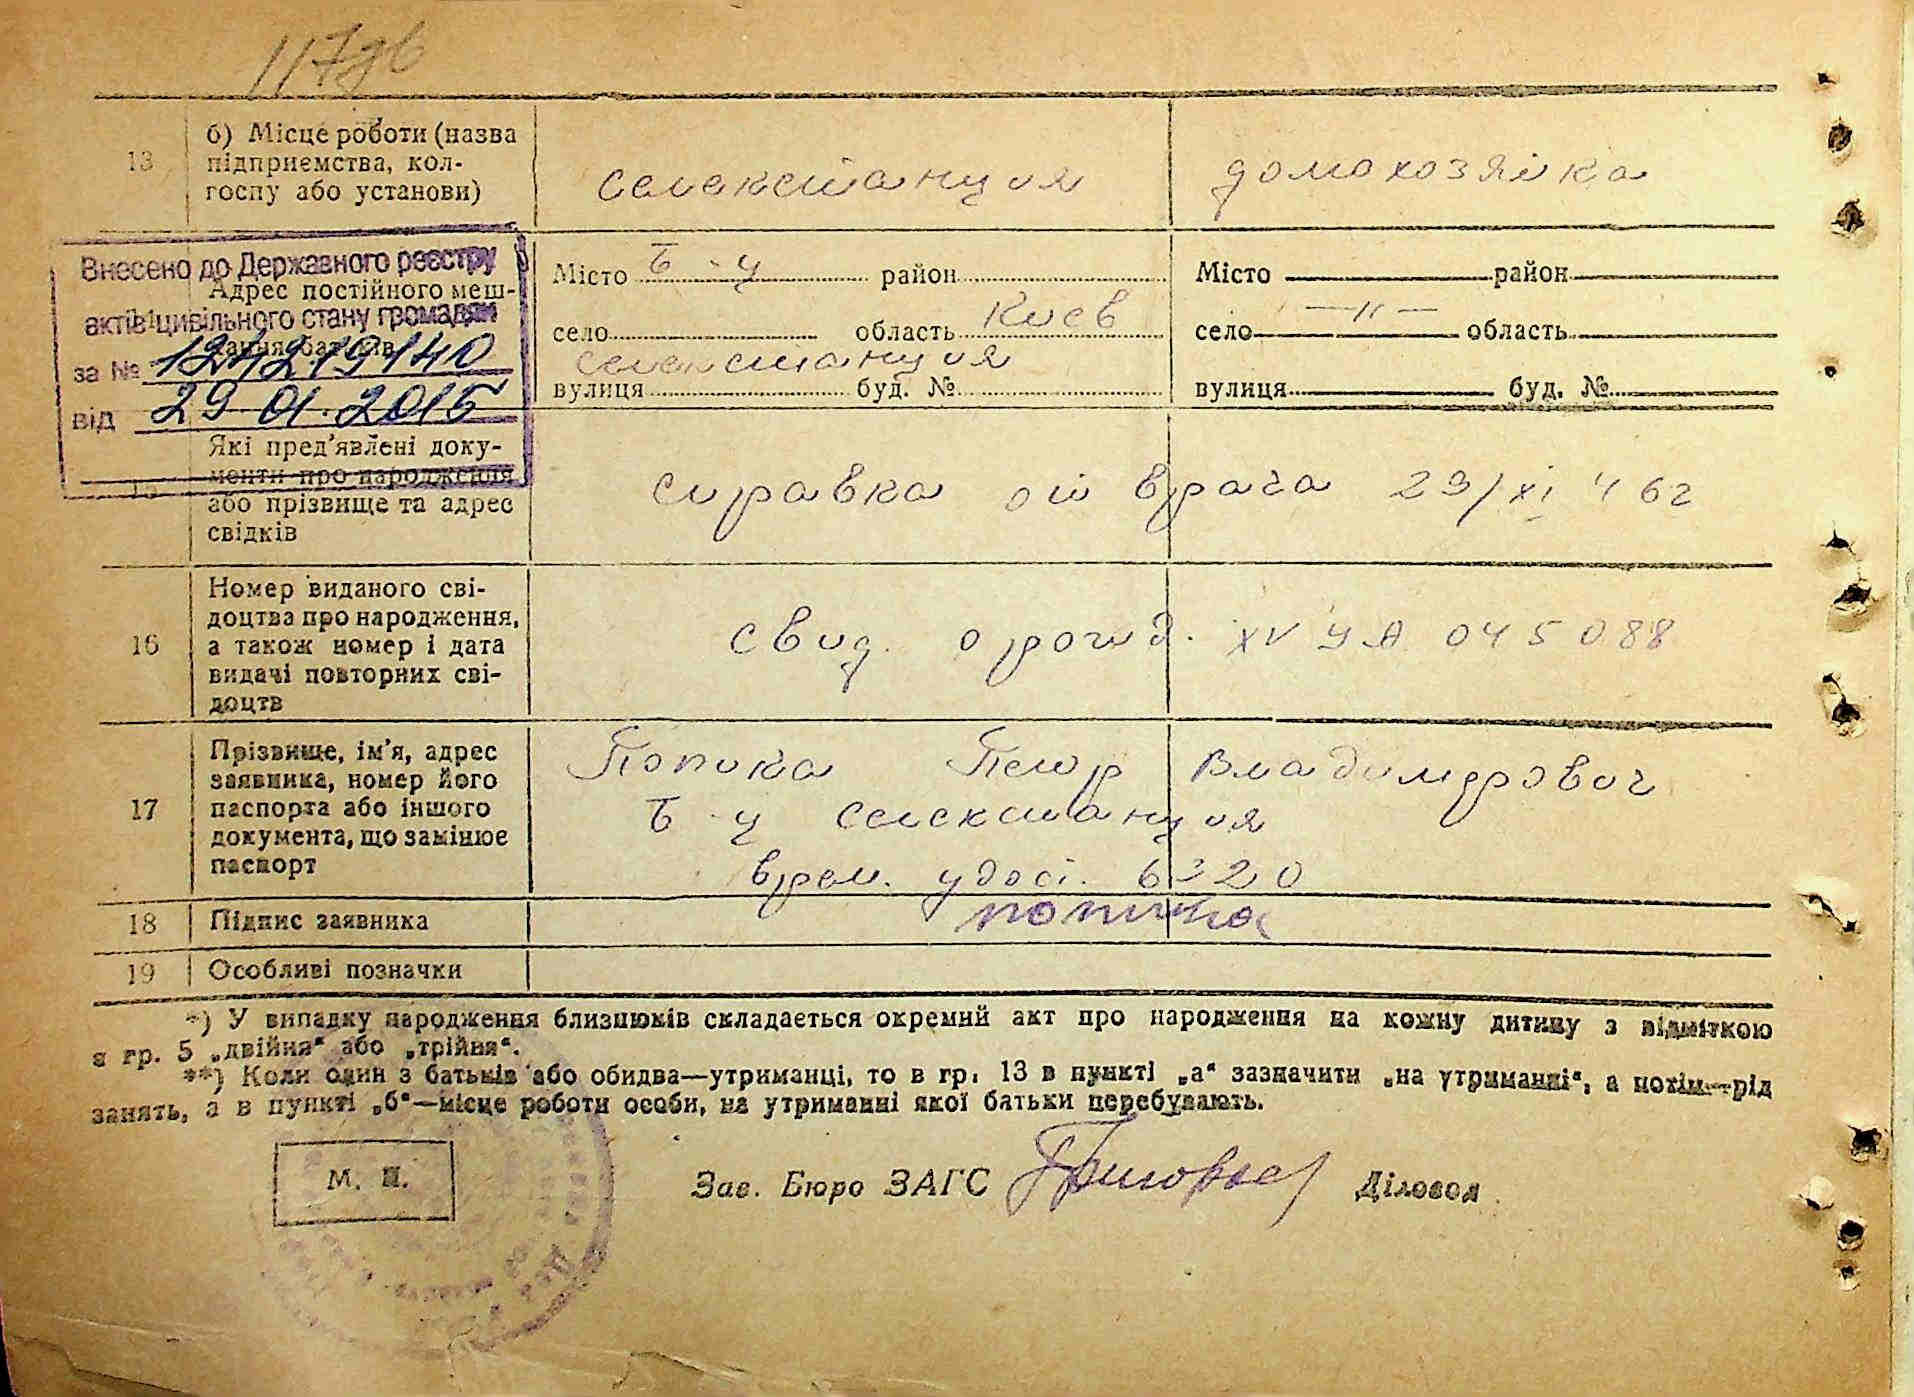 117дв
13
б) Місце роботи (назва
підприємства, кол-
госпу або установи)
селекстанция
домохозяйка
Внесено до Державного реєстру
актів цивільного стану громадян
за №
від 29 01. 2015
Адрес постійного меш-
Місто Б-ц район
село область Киев
селекстанция
вулиця буд. №
Місто район
село —"— область
вулиця буд. №
Які пред'явлені доку-
менти про народження
або прізвище та адрес
свідків
справка от врача 29/XI 46г
16
Номер виданого сві-
доцтва про народження,
а також номер і дата
видачі повторних сві-
доцтв
свид. о рожд. XV УА 045088
17
Прізвище, ім'я, адрес
заявника, номер його
паспорта або іншого
документа, що замінює
паспорт
Попика Петр Владимирович
Б-ц селекстанция
врем. удост. 6320
18
Підпис заявника
попика
19
Особливі позначки
*) У випадку народження близнюків складається окремий акт про народження на кожну дитину з відміткою
в гр. 5 „двійня" або „трійня".
**) Коли один з батьків або обидва—утриманці, то в гр. 13 в пункті „а" зазначити „на утриманні", а потім—рід
занять, а в пункті „б"—місце роботи особи, на утриманні якої батьки перебувають.
М. П.
Зав. Бюро ЗАГС
Діловод